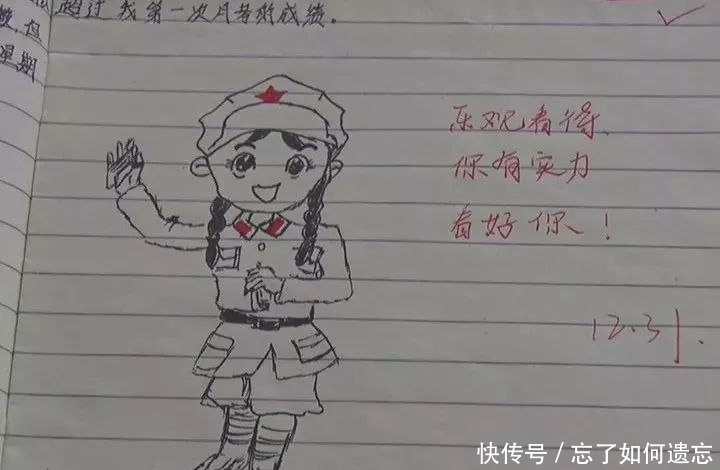 超过我第一次月考的成绩.
但
星期
乐观看待
你有实力
看好你!
12.31.
快传号/忘了如何遗忘